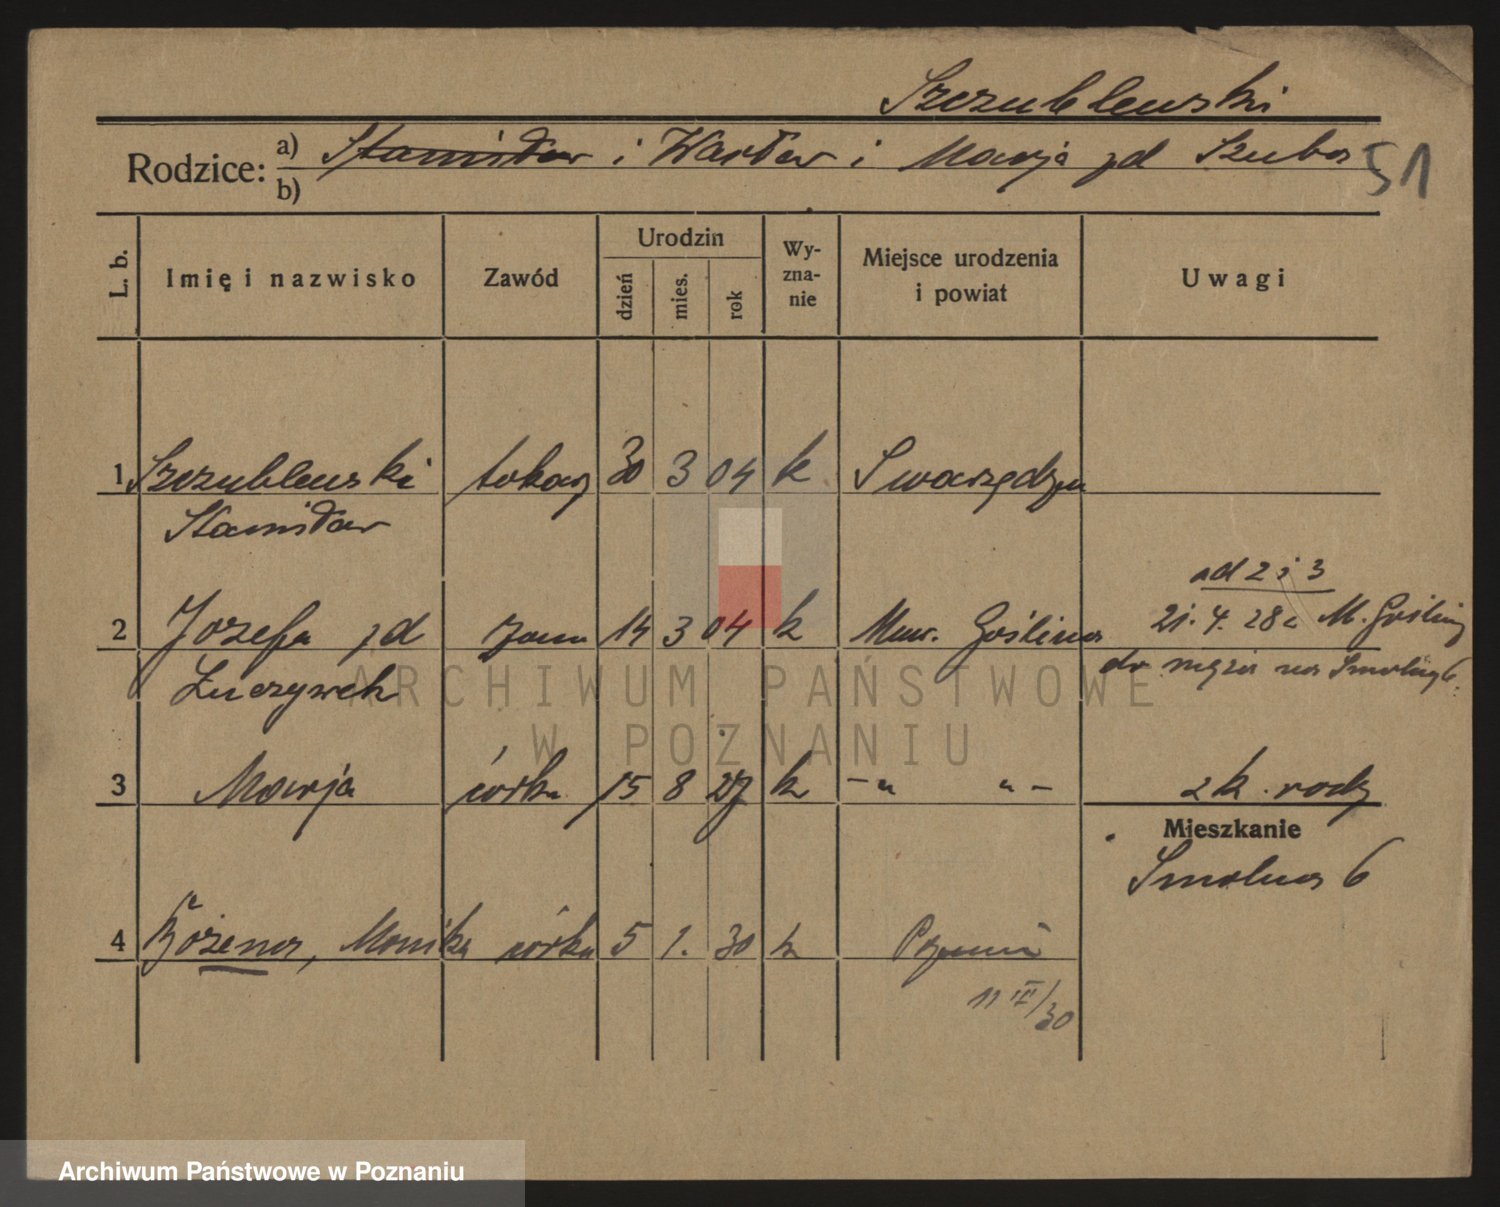 Szczublewski
Rodzice: a) Stanisław i Wacław i Marja zd Szuba 51
b)
L. b. Imię i nazwisko Zawód Urodzin dzień mies. rok Wy-zna-nie Miejsce urodzenia i powiat Uwagi
1 Szczublewski tokarz 30 3 04 k Swarzędz
Stanisław
ad 2 i 3
21. 4. 28 z M. Gośliny
2 Józefa zd żona 14 3 04 k Mur. Goślina
do męża na Smolną 6
Łuczywek
3 Marja córka 15 8 27 k -„ „-
2 k.
Mieszkanie
Smolna 6
4 Bożena, Monika córka 5 1. 30 k Poznań
11 III/30
ARCHIWUM PAŃSTWOWE
W POZNANIU
Archiwum Państwowe w Poznaniu